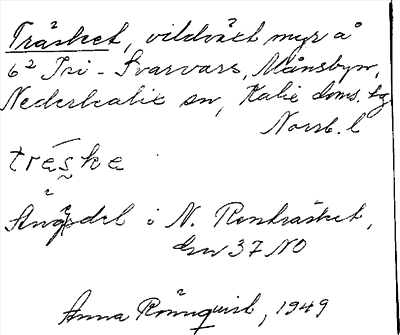 Träsket, vildväxt myr å
6² Tri-Svarvars, Månsbyn,
Nederkalix sn, Kalix doms. tg
Norrb. l
trēske
Ängsdel i N. Renträsket,
                    37 NO
Anna Rönnquist, 1949